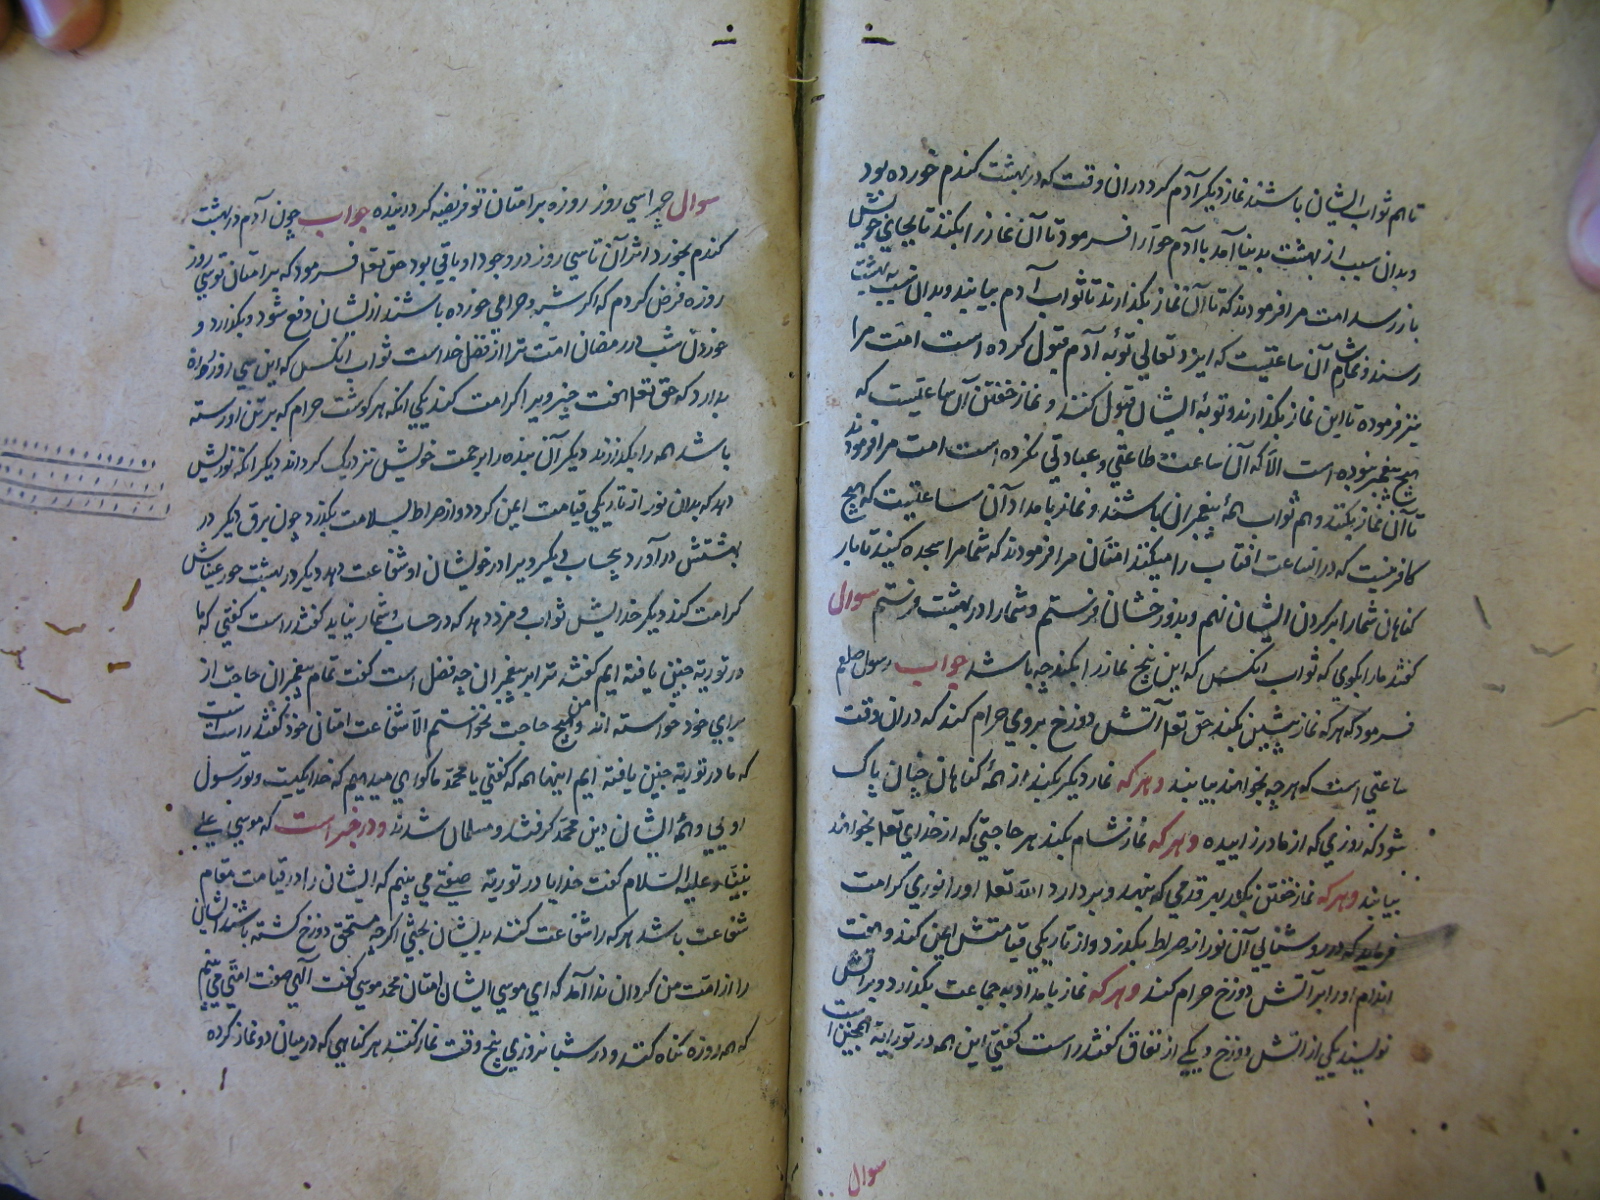 تا هم ثواب ایشان باشند نماز دیگر آدم کرد دران وقت که در بهشت کندم خورده بود
و بدان سبب از بهشت بدینا آمد با آدم حوا را فرمود تا آن نماز را بکند تا بجای خویش
باز رسد امت مرا فرمودند که تا آن نماز بکذارند تا ثواب آدم بیابند و بدان سبب به بهشت
رسند و نماز شام آن ساعتیست که ایزد تعالی توبه آدم قبول کرده است امت مرا
نیز فرموده تا این نماز بکذارند و توبۀ ایشان قبول کند و نماز خفتن آن ساعتیست که
هیچ پیغمبر نبوده است الا که آن ساعت طاعتی و عبادتی نکرده است امت مرا فرمودند
تا آن نماز بکنند و هم ثواب همۀ پیغمبران باشند و نماز بامداد آن ساعتیست که هیچ
کافر نیست که در انساعت افتاب را میکنند امتان مرا فرمودند که شما مرا سجده کنید تا بار
کناهان شما را بر کردن ایشان نهم و بدوزخشان فرستم و شما را در بهشت فرستم سوال
کفتند ما را بکوی که ثواب انکس که این پنج نماز را بکند چه باشد جواب رسول صلعم
فرمود که هر که نماز پیشین بکند حق تعا آتش دوزخ بر وی حرام کند که در ان وقت
ساعتی است که هر چه بخواهند بیابند و هر که نماز دیکر بکند از همۀ کناهان چنان پاک
شود که روزی که از مادر زاییده و هر که نماز شام بکند هر حاجتی که از خدای تعا بخواهد
بیابند و هر که نماز خفتن بکند بهر قدمی که بنهد و بردارد الله تعا او را نوری کرامت
فرماید که در روشنایی آن نور از صراط بکذرد و از تاریکی قیامتش ایمن کند و هفت
اندام او را بر آتش دوزخ حرام کند و هر که نماز بامداد به جماعت بکذارد و براتش
نویسند یکی از اتش دوزخ و یکی از نفاق کفتند راست کفتی این همه در توراية همچنین است
سوال
سوال چرا سی روز روزه بر امتان تو فریضه کردانیده جواب چون آدم در بهشت
کندم بخورد اثر آن تا سی روز در وجود او باقی بود حق تعا فرمود که بر امتان تو سی روز
روزه فرض کردم که اکر شبه و حرامی خورده باشند از ایشان دفع شود دیکذارد و
خوردن شب در رمضان امت ترا از فضل خداست ثواب انکس که این سی روز روزه
بدارد که حق تعا هفت چیز ویرا کرامت کند یکی انکه هر کوشت حرام که بر تن او رسته
باشد همه را بکدازند دیکر آن بنده را برحمت خویش نزدیک کرداند دیکر انکه نوریش
دهد که بدان نور از تاریکی قیامت ایمن کردد و از صراط بسلامت بکذرد چون برق دیکر در
بهشتش درآورد بیحساب دیکر ویرا در خویشان او شفاعت دهد دیکر در بهشت حور عیناش
کرامت کند دیکر خدایش ثواب و مزد دهد که در حساب و شمار نیاید کفتند راست کفتی که ما
در توریة چنین یافته ایم کفتند ترا بر پیغمبران چه فضل است کفت تمام پیغمبران حاجت از
برای خود خواسته اند و من هیچ حاجت نخواستم الا شفاعت امتان خود کفتند راست است
که ما در توریة چنین یافته ایم اینها همه که کفتی یا محمد ما کوای میدهیم که خدا یکیست و تو رسول
اویی و همۀ ایشان دین محمد کرفتند و مسلمان شدند و در خبر است که موسی علی
نبینا و علیه السلام کفت خدایا در توریة صفتی می بینم که ایشان را در قیامت مقام
شفاعت باشد هر که را شفاعت کنند بدیشان بخشی اکر چه مستحق دوزخ کشته باشند ایشان
را از امت من کردان ندا آمد که ای موسی ایشان امتان محمد موسی کفت آلهی صفت امتی می بینم
که همه روزه کناه کنند و در شبانروزی پنج وقت نماز کنند هر کناهی که در میان دو نماز کرده